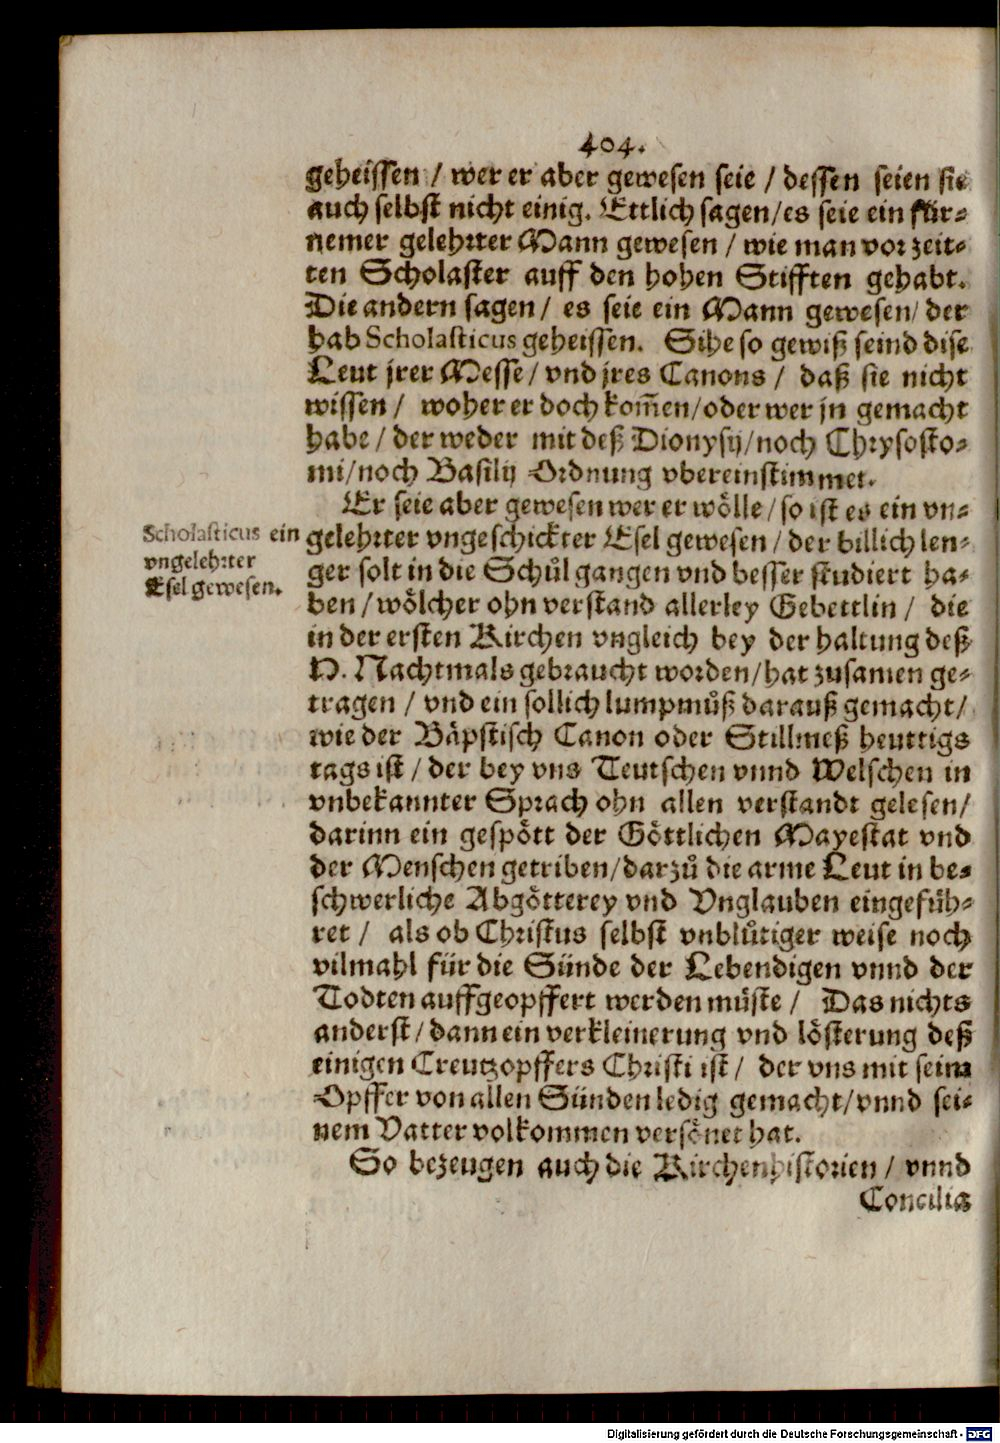 404.
geheissen / wer er aber gewesen seie / dessen seien sie
auch selbst nicht einig. Ettlich sagen / es seie ein für-
nemer gelehrter Mann gewesen / wie man vor zeit-
ten Scholaster auff den hohen Stifften gehabt.
Die andern sagen / es seie ein Mann gewesen / der
hab Scholasticus geheissen. Sihe so gewiß seind dise
Leut jrer Messe / vnd jres Canons / daß sie nicht
wissen / woher er doch kom̃en / oder wer jn gemacht
habe / der weder mit deß Dionysij / noch Chrysosto-
mi / noch Basilij Ordnung vbereinstimmet.
Er seie aber gewesen wer er wölle / so ist es ein vn-
Scholasticus ein
vngelehrter
Esel gewesen.
gelehrter vngeschickter Esel gewesen / der billich len-
ger solt in die Schůl gangen vnd besser studiert ha-
ben / wölcher ohn verstand allerley Gebettlin / die
in der ersten Kirchen vngleich bey der haltung deß
H. Nachtmals gebraucht worden / hat zusamen ge-
tragen / vnd ein sollich lumpmůß darauß gemacht /
wie der Bäpstisch Canon oder Stillmeß heuttigs
tags ist / der bey vns Teutschen vnnd Welschen in
vnbekannter Sprach ohn allen verstandt gelesen /
darinn ein gespött der Göttlichen Mayestat vnd
der Menschen getriben / darzů die arme Leut in be-
schwerliche Abgötterey vnd Vnglauben eingefüh-
ret / als ob Christus selbst vnblůtiger weise noch
vilmahl für die Sünde der Lebendigen vnnd der
Todten auffgeopffert werden müste / Das nichts
anderst / dann ein verkleinerung vnd lösterung deß
einigen Creutzopffers Christi ist / der vns mit seim
Opffer von allen Sünden ledig gemacht / vnnd sei-
nem Vatter volkommen versönet hat.
So bezeugen auch die Kirchenhistorien / vnnd
Concilia
Digitalisierung gefördert durch die Deutsche Forschungsgemeinschaft - DFG